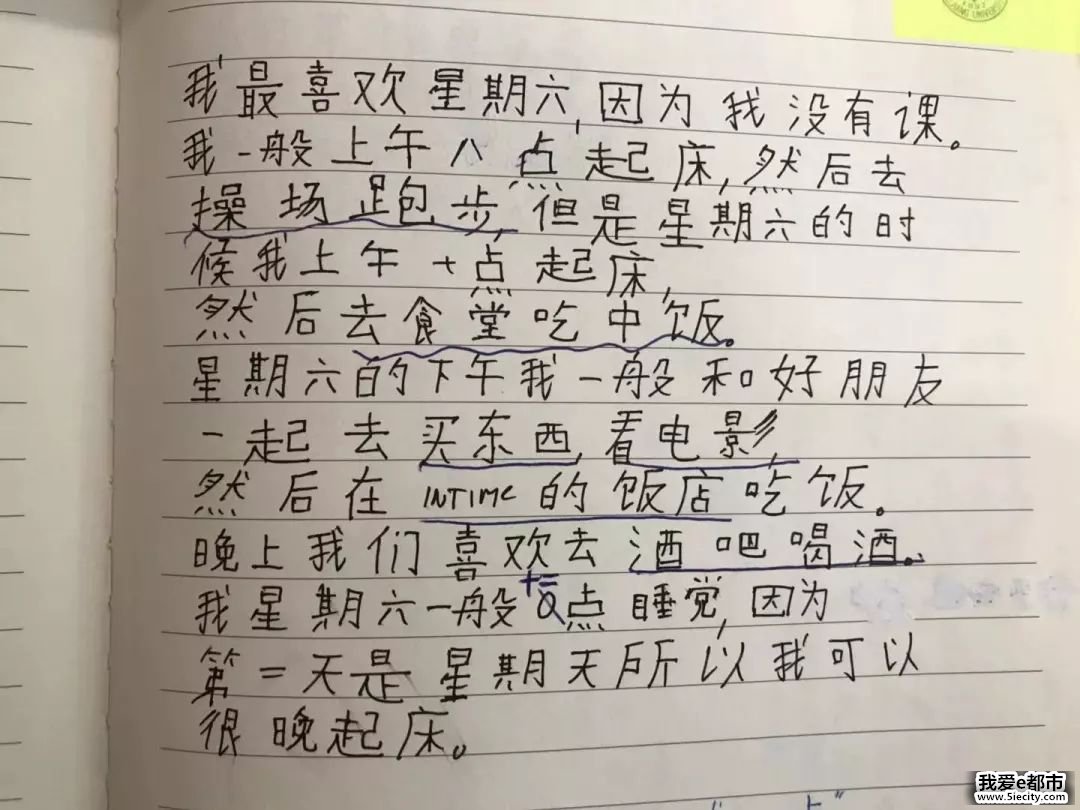 UNIVERSITY
我最喜欢星期六,因为我没有课。
我一般上午八点起床,然后去
操场跑步,但是星期六的时
候我上午十点起床,
然后去食堂吃中饭。
星期六的下午我一般和好朋友
一起去买东西,看电影,
然后在 INTIME 的饭店吃饭。
晚上我们喜欢去酒吧喝酒。
十二
我星期六一般 点睡觉,因为
第二天是星期天所以我可以
很晚起床。
我爱e都市
www.5iecity.com